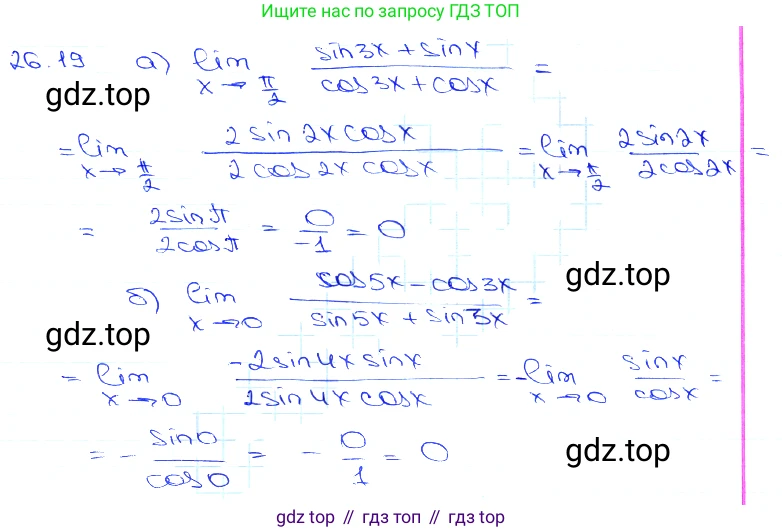 Ищите нас по запросу ГДЗ ТОП
26.19 а) lim x→π/2 (sin3x + sinx)/(cos3x + cosx) =
gdz.top
= lim x→π/2 (2 sin 2x cosx)/(2 cos 2x cosx) = lim x→π/2 2sin2x/2cos2x =
= 2sinπ/2cosπ = 0/-1 = 0
gdz.top
б) lim x→0 (cos5x - cos3x)/(sin5x + sin3x) =
gdz.top
= lim x→0 (-2sin4x sinx)/(2sin4x cosx) = -lim x→0 sinx/cosx =
= - sin0/cos0 = - 0/1 = 0
gdz.top
gdz top // гдз топ // gdz top